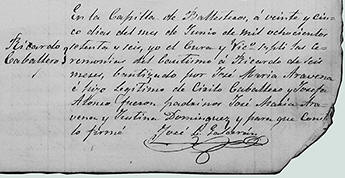 En la Capilla de Ballesteros, á veinte y cin-
co dias del mes de Junio de mil ochocientos
setenta y seis, yo el Cura y Vico. suplí las ce-
Ricardo
Caballero
remonias del bautismo á Ricardo de seis
meses, bautizado por José María Aravena
é hijo legítimo de Cirilo Caballero y Josefa
Alonso fueron padrinos José María Ara-
vena y Justina Dominguez y para que cons-
te firmé
José